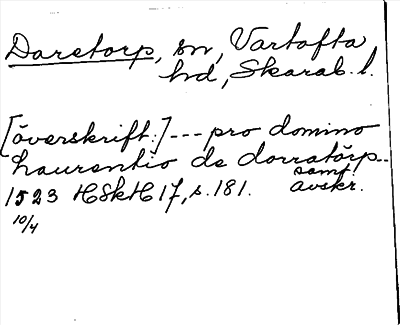 Daretorp, sn, Vartofta
hd, Skarab. l.
[överskrift:] --- pro domino
Laurentio de dorratörp--
samt
1523 HSkH 17, s. 181. avskr.
10/4